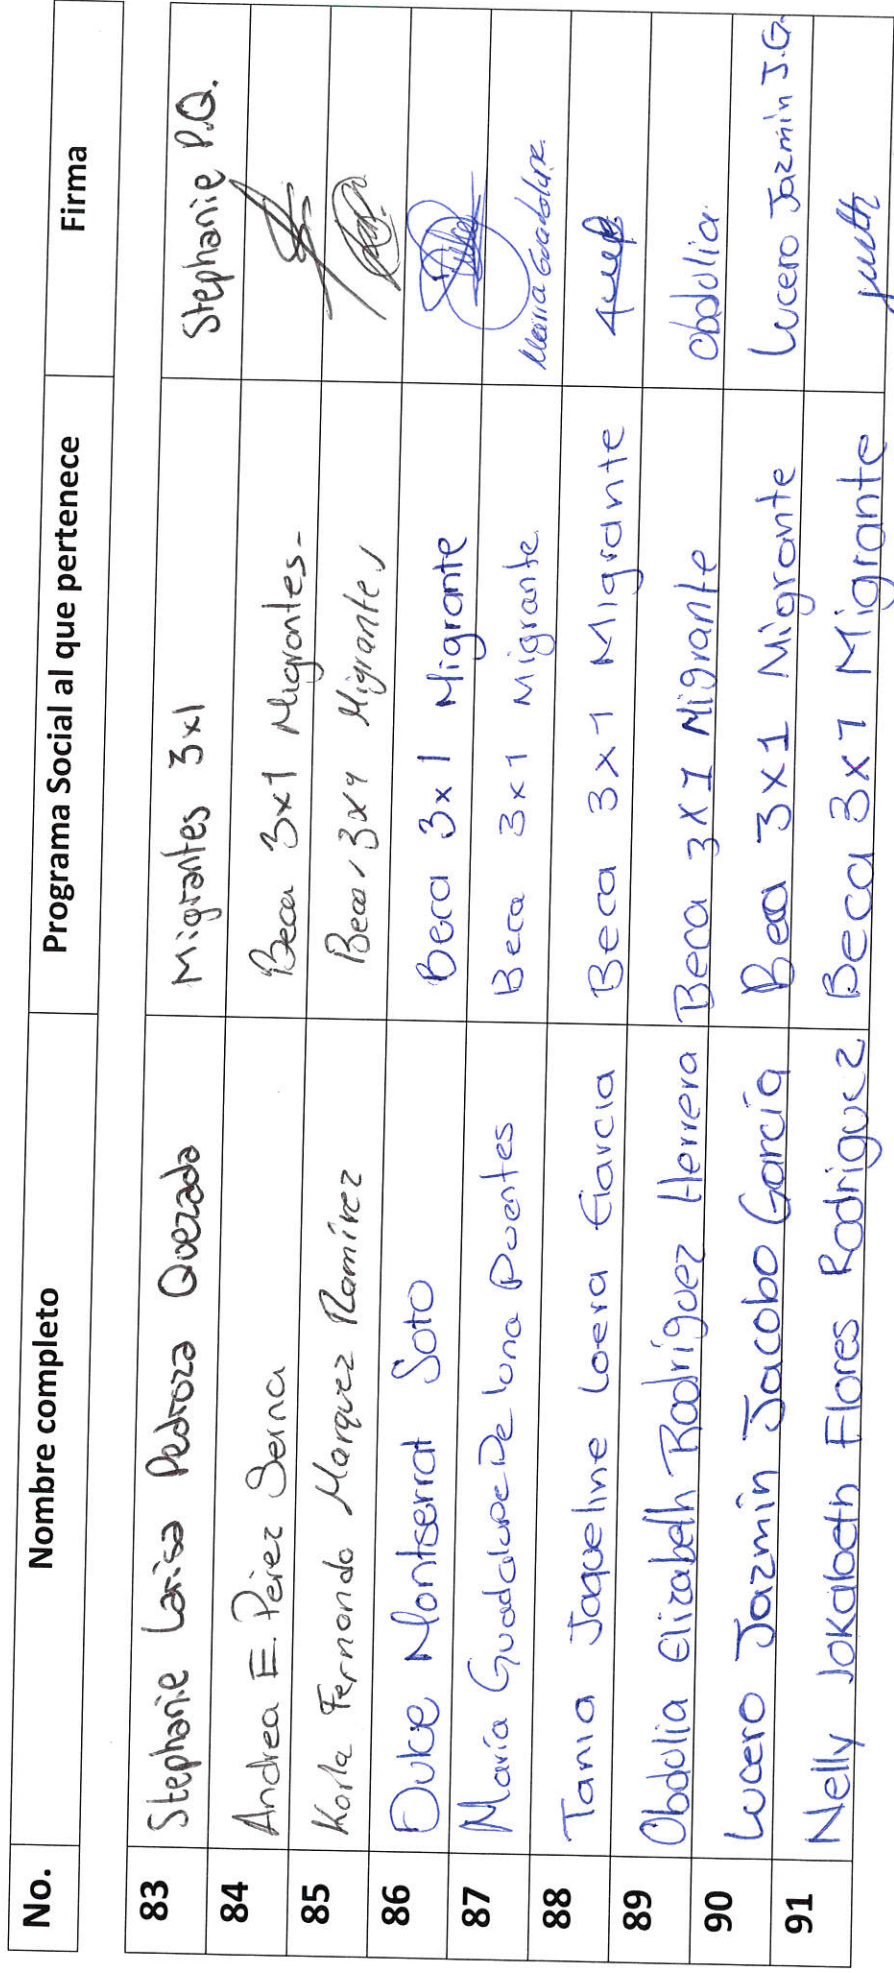 No. Nombre completo Programa Social al que pertenece Firma
83 Stephanie Larisa Pedroza Quezada Migrantes 3x1 Stephanie P.Q.
84 Andrea E. Pérez Serna Beca 3x1 Migrantes-
85 Karla Fernanda Marquez Ramírez Beca 3x1 Migrantes
86 Dulce Montserrat Soto Beca 3x1 Migrante
87 María Guadalupe De luna Puentes Beca 3x1 Migrante Maria Guadalupe
88 Tania Jaqueline Loera Garcia Beca 3x1 Migrante
89 Obdulia Elizabeth Rodríguez Herrera Beca 3X1 Migrante Obdulia
90 Lucero Jazmín Jacobo García Beca 3X1 Migrante Lucero Jazmín J.G.
91 Nelly Jokabeth Flores Rodriguez Beca 3x1 Migrante